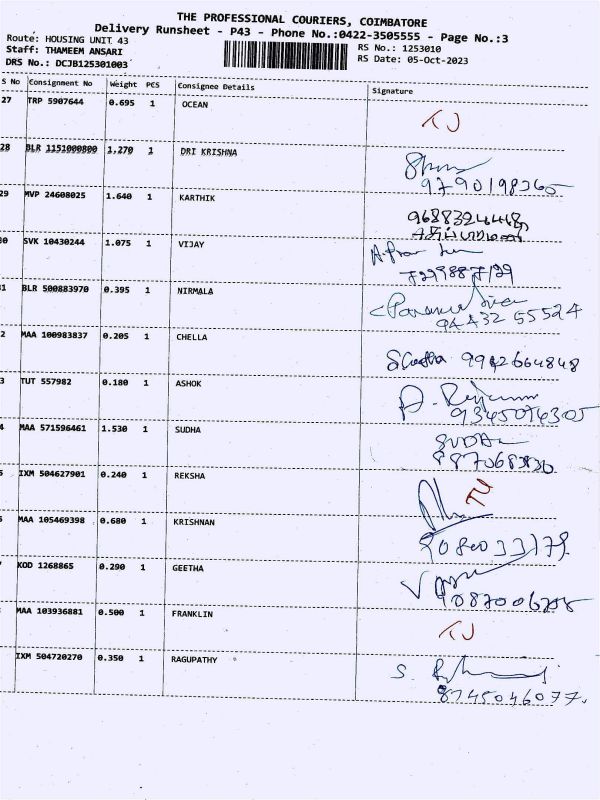 THE PROFESSIONAL COURIERS, COIMBATORE
Delivery Runsheet - P43 - Phone No.:0422-3505555 - Page No.:3
Route: HOUSING UNIT 43
Staff: THAMEEM ANSARI
DRS No.: DCJB125301003
RS No.: 1253010
RS Date: 05-Oct-2023
S No Consignment No Weight PCS Consignee Details Signature
27 TRP 5907644 0.695 1 OCEAN TJ
28 BLR 1151000800 1.270 1 DRI KRISHNA
9790198365
29 MVP 24608025 1.640 1 KARTHIK 9688324448
30 SVK 10430244 1.075 1 VIJAY
7299887129
1 BLR 500883970 0.395 1 NIRMALA
94432 55524
2 MAA 100983837 0.205 1 CHELLA 9942664848
3 TUT 557982 0.180 1 ASHOK
9345074305
4 MAA 571596461 1.530 1 SUDHA SUDHA
5 IXM 504627901 0.240 1 REKSHA TJ
MAA 105469398 0.680 1 KRISHNAN
9080033178
KOD 1268865 0.290 1 GEETHA
MAA 103936881 0.500 1 FRANKLIN TJ
IXM 504720270 0.350 1 RAGUPATHY
8745046077.